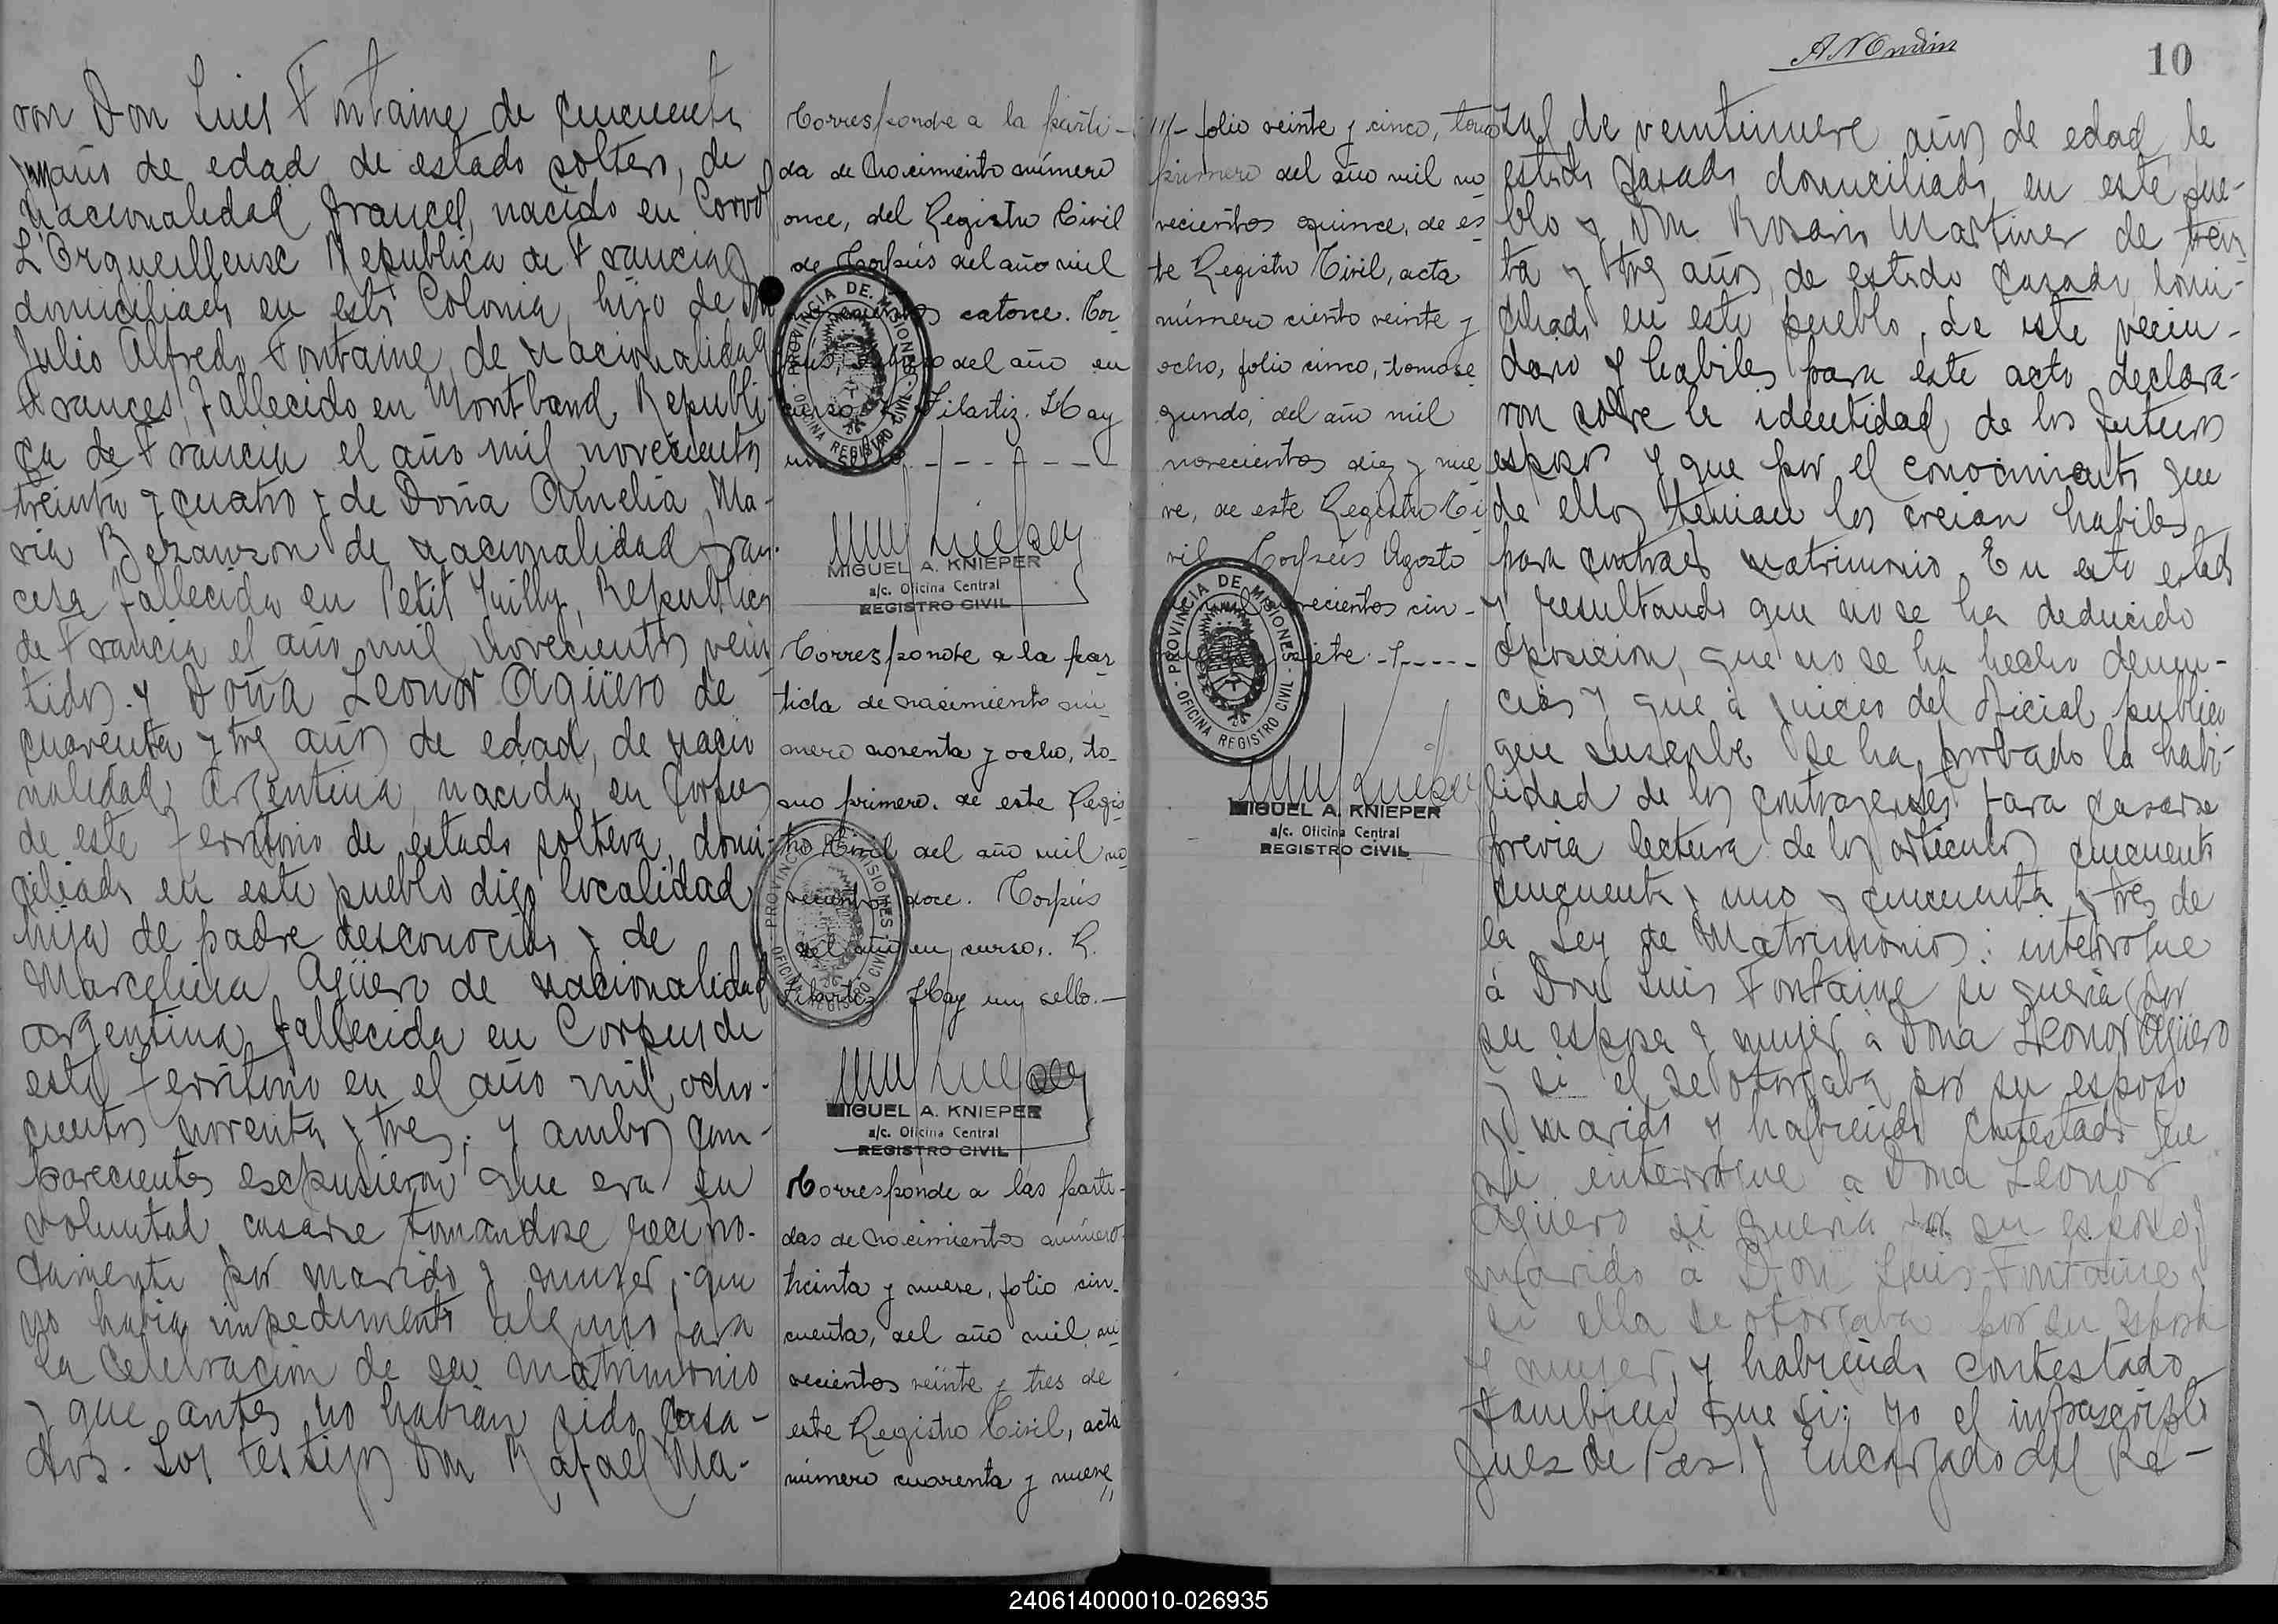 ron Don Luis Fontaine de cincuenta
años de edad de estado soltero, de
nacionalidad frances, nacido en Corvol
L'Orgueilleuse Republica de Francia
domiciliado en esta Colonia, hijo de Don
Julio Alfredo Fontaine de nacionalidad
Frances, fallecido en Republi-
ca de Francia el año mil novecientos
treinta y cuatro y de Doña Amelia Ma-
ria Bezanzon de nacionalidad fran-
cesa fallecida en Petit Republica
de Francia el año mil novecientos vein
tidos. y Doña Leonor Agüero de
cuarenta y tres años de edad, de nacio
nalidad Argentina, nacida en Corpus
de este territorio de estado soltera, domi-
ciliada en este pueblo digo localidad
hija de padre desconocido y de
Marcelina Agüero de nacionalidad
argentina fallecida en Corpus de
este territorio en el año mil ocho-
cientos noventa y tres; y ambos com-
parecientes espusieron que era su
voluntad casarse tomandose recipro-
camente por marido y mujer; que
no habia impedimento alguno para
la celebracion de su matrimonio
y que antes no habian sido casa-
dos. Los testigos Don Rafael Ma-
Corresponde a la parti-
da de nacimiento número
once, del Registro Civil
de Corpús del año mil
novecientos catorce. Cor-
pús, del año en
curso. R. Filartiz. Hay
un sello.
MIGUEL A. KNIEPER
a/c. Oficina Central
REGISTRO CIVIL
Corresponde a la par
tida de nacimiento nú-
mero noventa y ocho, to-
mo primero, de este Regis
tro Civil del año mil no
vecientos doce. Corpús
del año en curso. R.
Filartiz Hay un sello.-
MIGUEL A. KNIEPER
a/c. Oficina Central
REGISTRO CIVIL
Corresponde a las parti-
das de nacimientos número
treinta y nueve, folio cin-
cuenta, del año mil no
vecientos veinte y tres de
este Registro Civil, acta
número cuarenta y nueve,,
PROVINCIA DE MISIONES
OFICINA REGISTRO CIVIL
PROVINCIA DE MISIONES
OFICINA REGISTRO CIVIL
///- folio veinte y cinco, tomo
primero del año mil no
vecientos quince, de es
te Registro Civil, acta
número ciento veinte y
ocho, folio cinco, tomo se
gundo, del año mil
novecientos diez y nue
ve, de este Registro Ci
vil. Corpús Agosto
mil novecientos cin-
cuenta y siete.-
PROVINCIA DE MISIONES
OFICINA REGISTRO CIVIL
MIGUEL A. KNIEPER
a/c. Oficina Central
REGISTRO CIVIL
10
de veintinueve años de edad, de
estado casado domiciliado en este pue-
blo y Don Rosario Martinez de trein
ta y tres años, de estado casado domi-
ciliado en este pueblo, de este vecin-
dario y habiles para este acto declara-
ron sobre la identidad de los futuros
esposos y que por el conocimiento que
de ellos tenian los creian habiles
para contraer matrimonio. En este estado
y resultando que no se ha deducido
oposicion, que no se ha hecho denun-
cias y que á juicio del oficial publico
que suscribe se ha probado la habi-
lidad de los contrayentes para casarse
previa lectura de los articulos cincuenta
cincuenta y uno y cincuenta y tres de
la Ley de Matrimonios: interrogue
á Don Luis Fontaine si queria por
su esposa y mujer á Doña Leonor Agüero
y si el se otorgaba por su esposo
y marido y habiendo contestado que
si interrogue a Doña Leonor
Agüero si queria por su esposo y
marido á Don Luis Fontaine y
si ella se otorgaba por su esposa
y mujer, y habiendo contestado
tambien que si; yo el infrascripto
Juez de Paz y Encargado del Re-
240614000010-026935